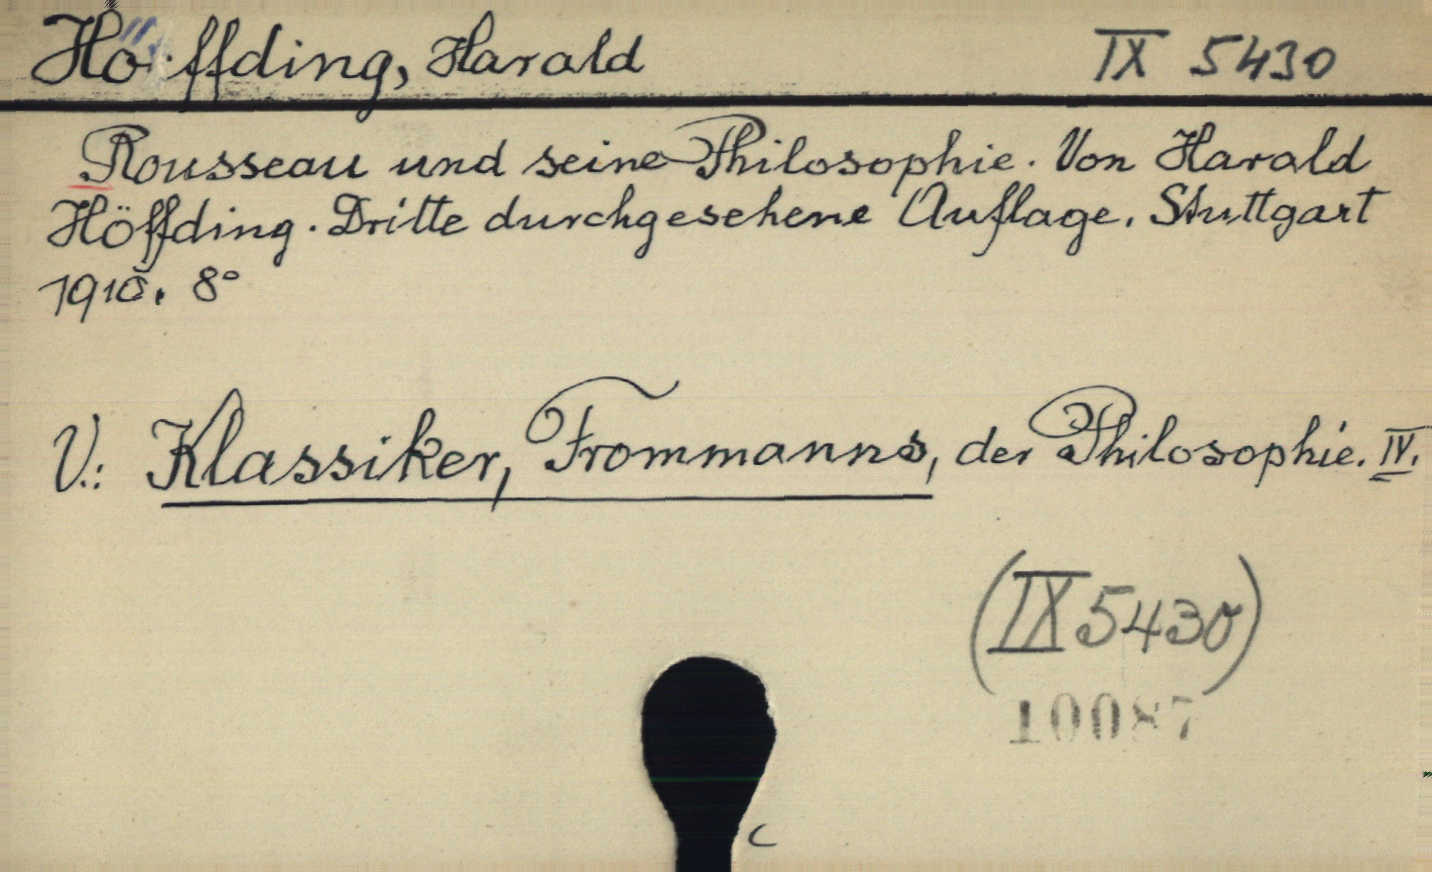 Höffding, Harald IX 5430
Rousseau und seine Philosophie. Von Harald
Höffding. Dritte durchgesehene Auflage. Stuttgart
1910. 8°
V.: Klassiker, Frommanns, der Philosophie. IV.
(IX 5430)
10087
c